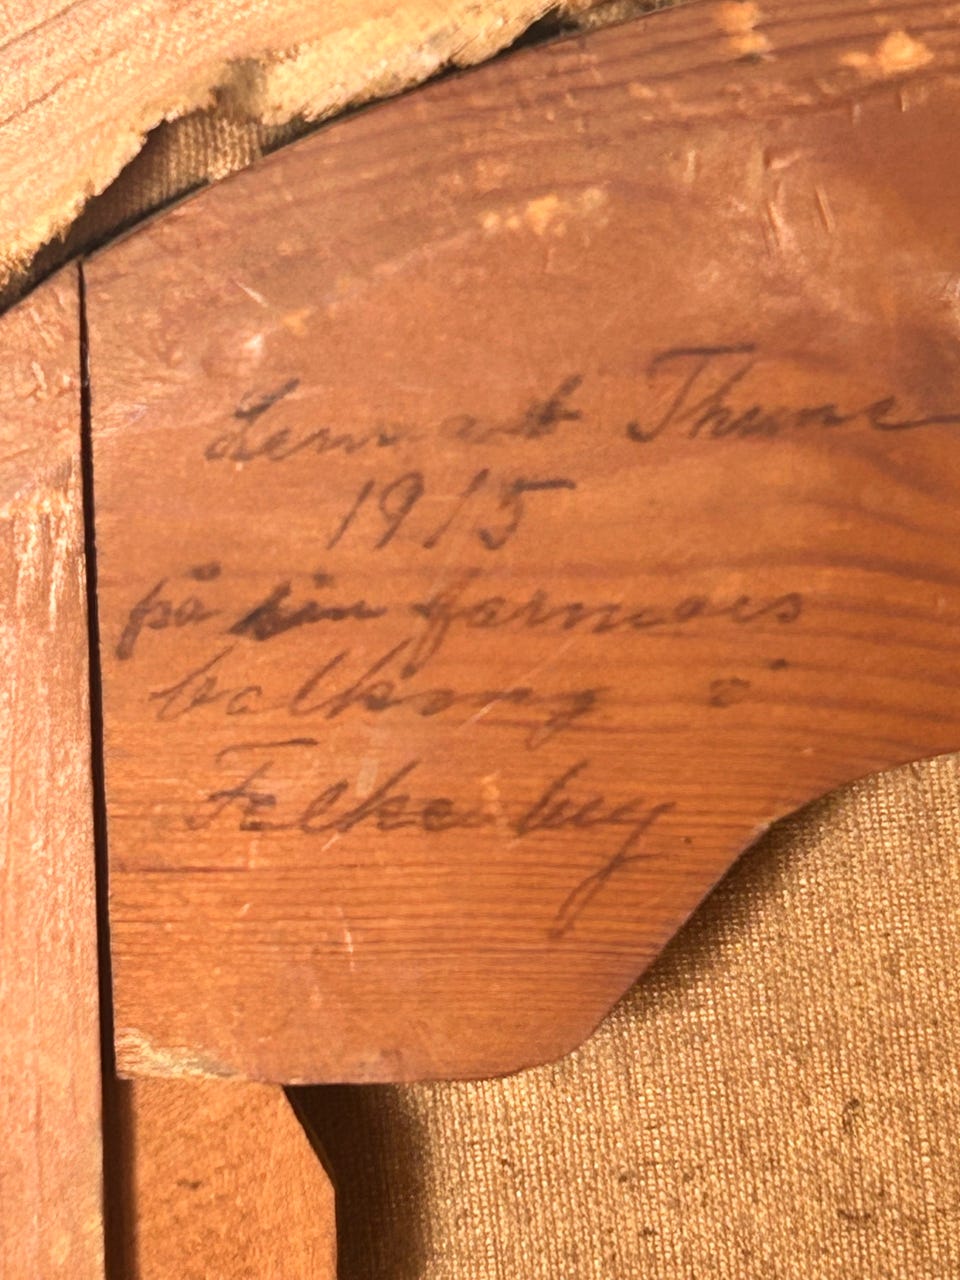 Lennart Thune
1915
på sin farmors
balkong i
Falkenberg